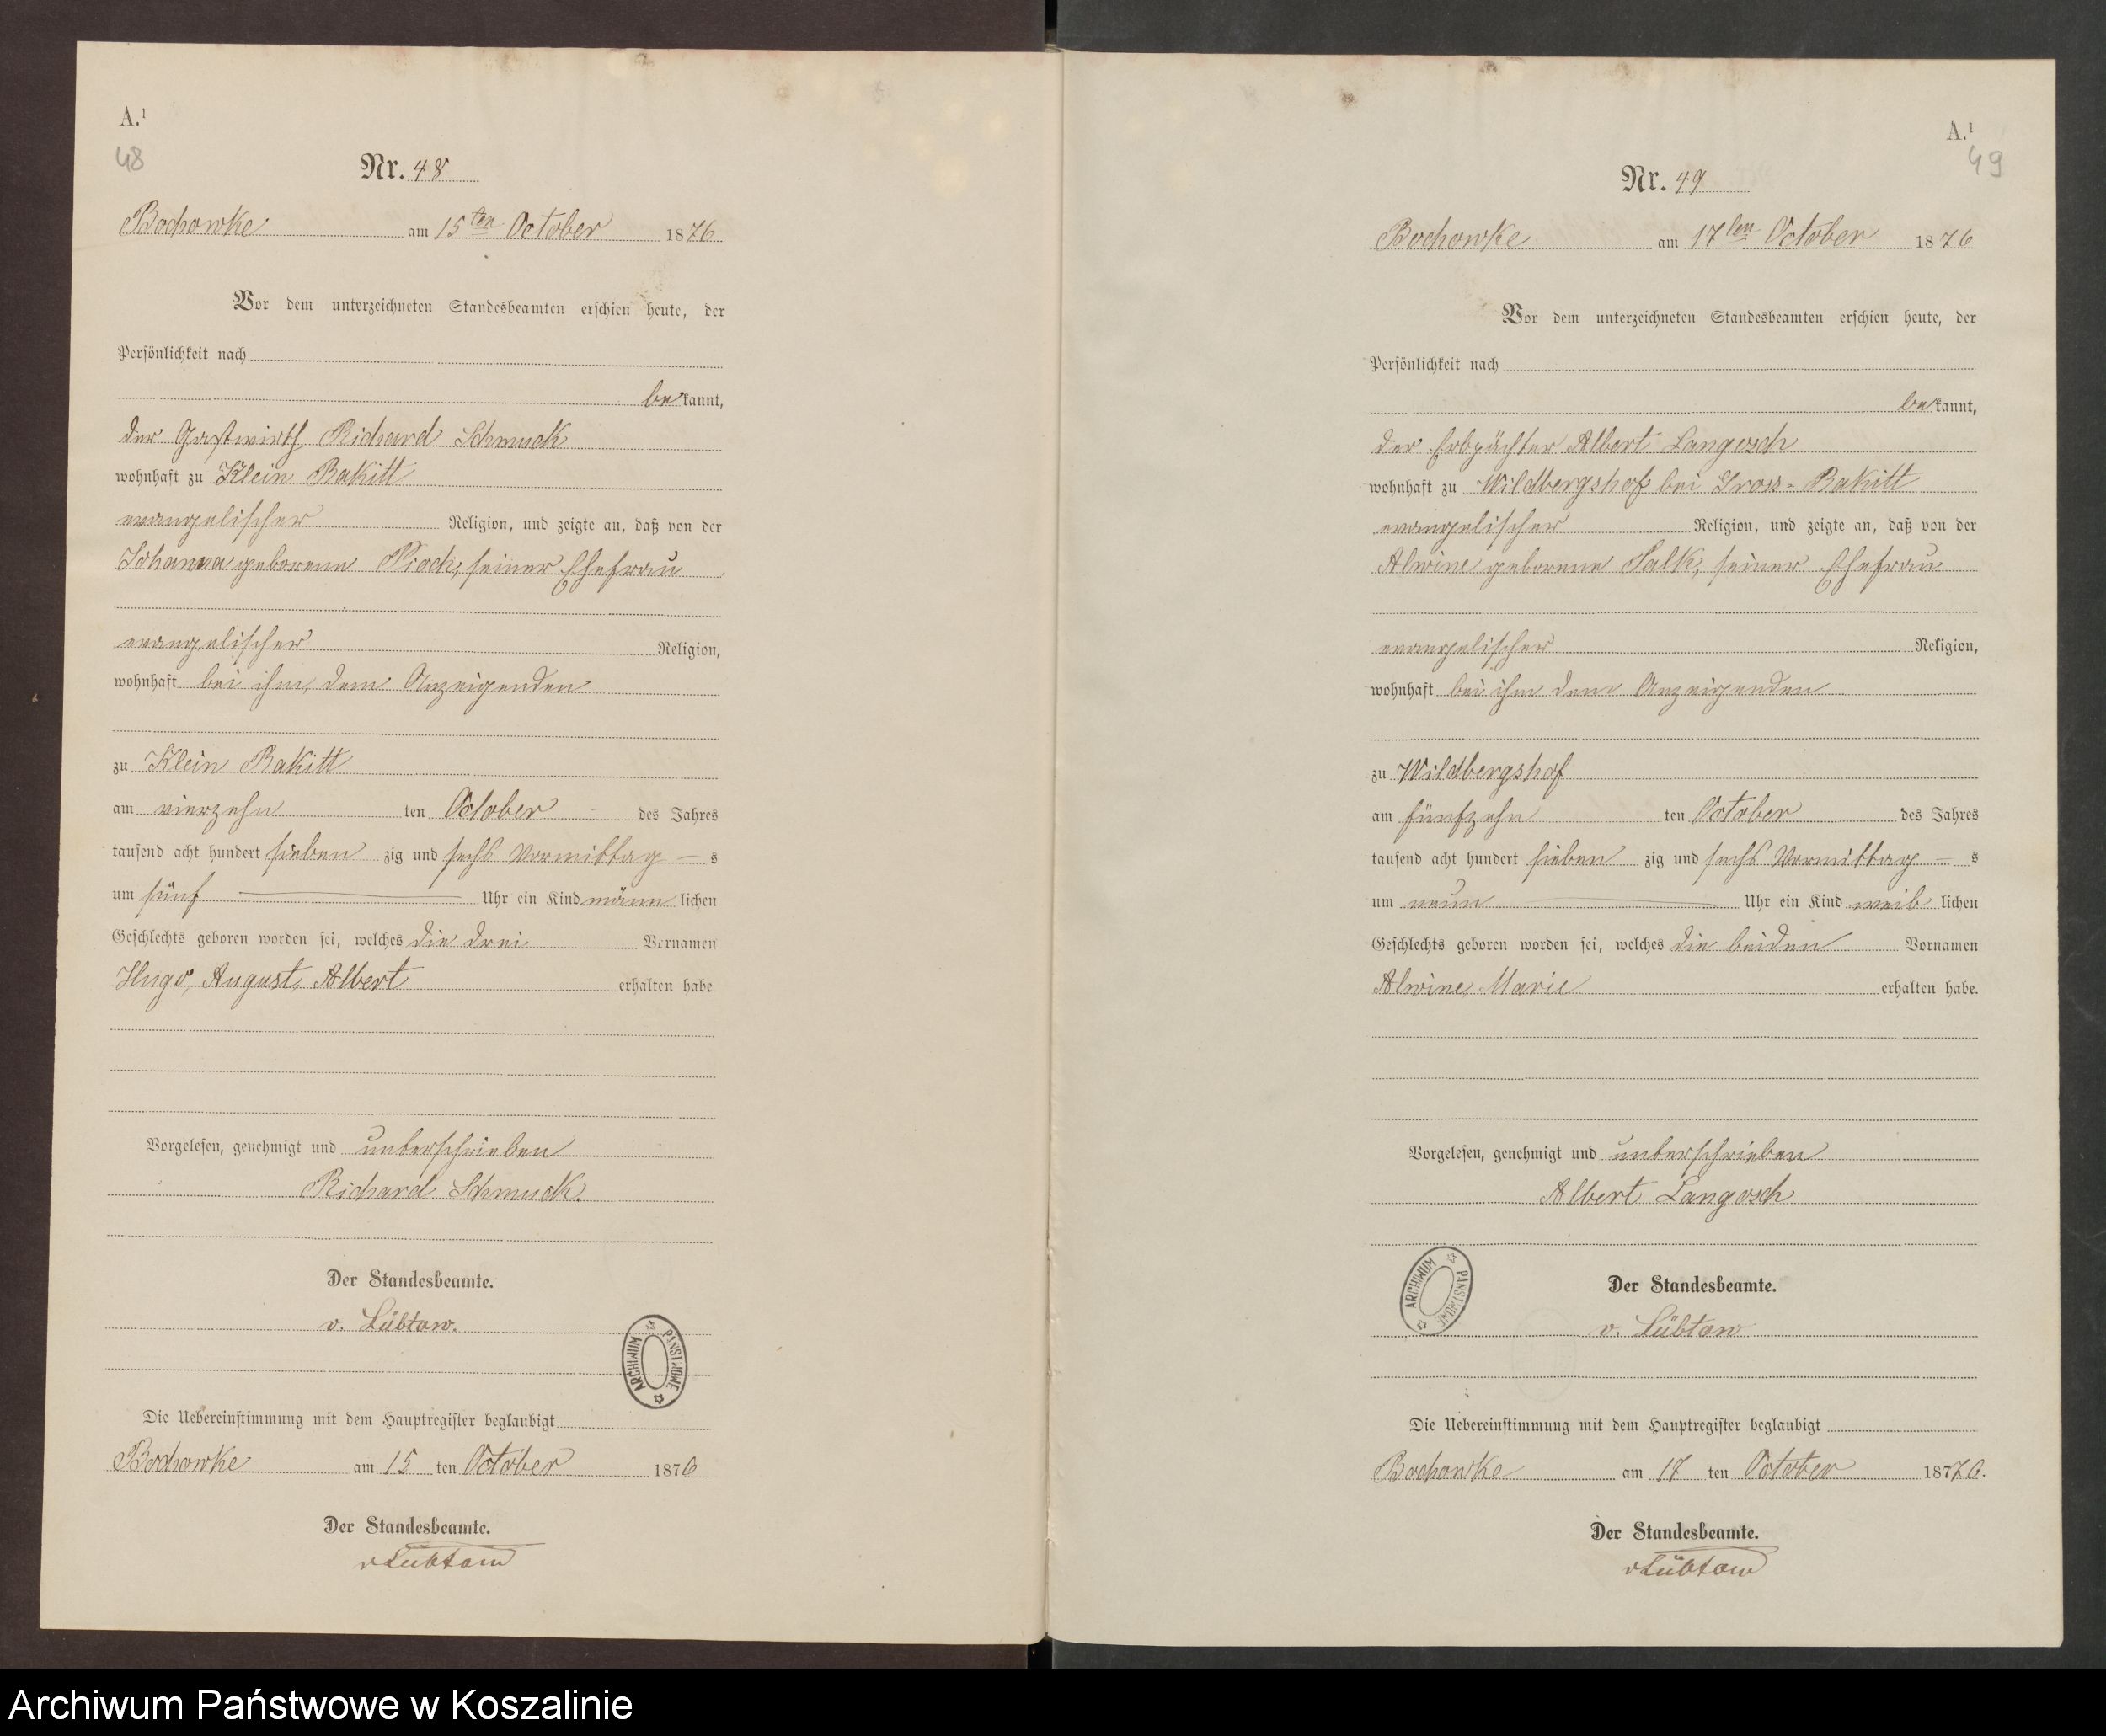 A.¹
48
Nr. 48
Bochowke am 15ten October 1876
Vor dem unterzeichneten Standesbeamten erschien heute, der
Persönlichkeit nach
bekannt,
der Gastwirth Richard Schmuck
wohnhaft zu Klein Rakitt
evangelischer Religion, und zeigte an, daß von der
Johanna geborene Pioch, seiner Ehefrau
evangelischer Religion,
wohnhaft bei ihm, dem Anzeigenden
zu Klein Rakitt
am vierzehn ten October des Jahres
tausend acht hundert sieben zig und sechs Vormittag – s
um fünf Uhr ein Kind männ lichen
Geschlechts geboren worden sei, welches die drei Vornamen
Hugo, August, Albert erhalten habe
Vorgelesen, genehmigt und unterschrieben
Richard Schmuck.
Der Standesbeamte.
v. Lübtow.
ARCHIWUM PAŃSTWOWE
Die Uebereinstimmung mit dem Hauptregister beglaubigt
Bochowke am 15 ten October 1876
Der Standesbeamte.
vLübtow
A.¹
49
Nr. 49
Bochowke am 17ten October 1876
Vor dem unterzeichneten Standesbeamten erschien heute, der
Persönlichkeit nach
bekannt,
der Erbpächter Albert Langosch
wohnhaft zu Wildbergshof bei Gross-Rakitt
evangelischer Religion, und zeigte an, daß von der
Alwine geborene Salk, seiner Ehefrau
evangelischer Religion,
wohnhaft bei ihm dem Anzeigenden
zu Wildbergshof
am fünfzehn ten October des Jahres
tausend acht hundert sieben zig und sechs Vormittag – s
um neun Uhr ein Kind weib lichen
Geschlechts geboren worden sei, welches die beiden Vornamen
Alwine, Marie erhalten habe.
Vorgelesen, genehmigt und unterschrieben
Albert Langosch
ARCHIWUM PAŃSTWOWE
Der Standesbeamte.
v. Lübtow
Die Uebereinstimmung mit dem Hauptregister beglaubigt
Bochowke am 17 ten October 1876.
Der Standesbeamte.
vLübtow
Archiwum Państwowe w Koszalinie